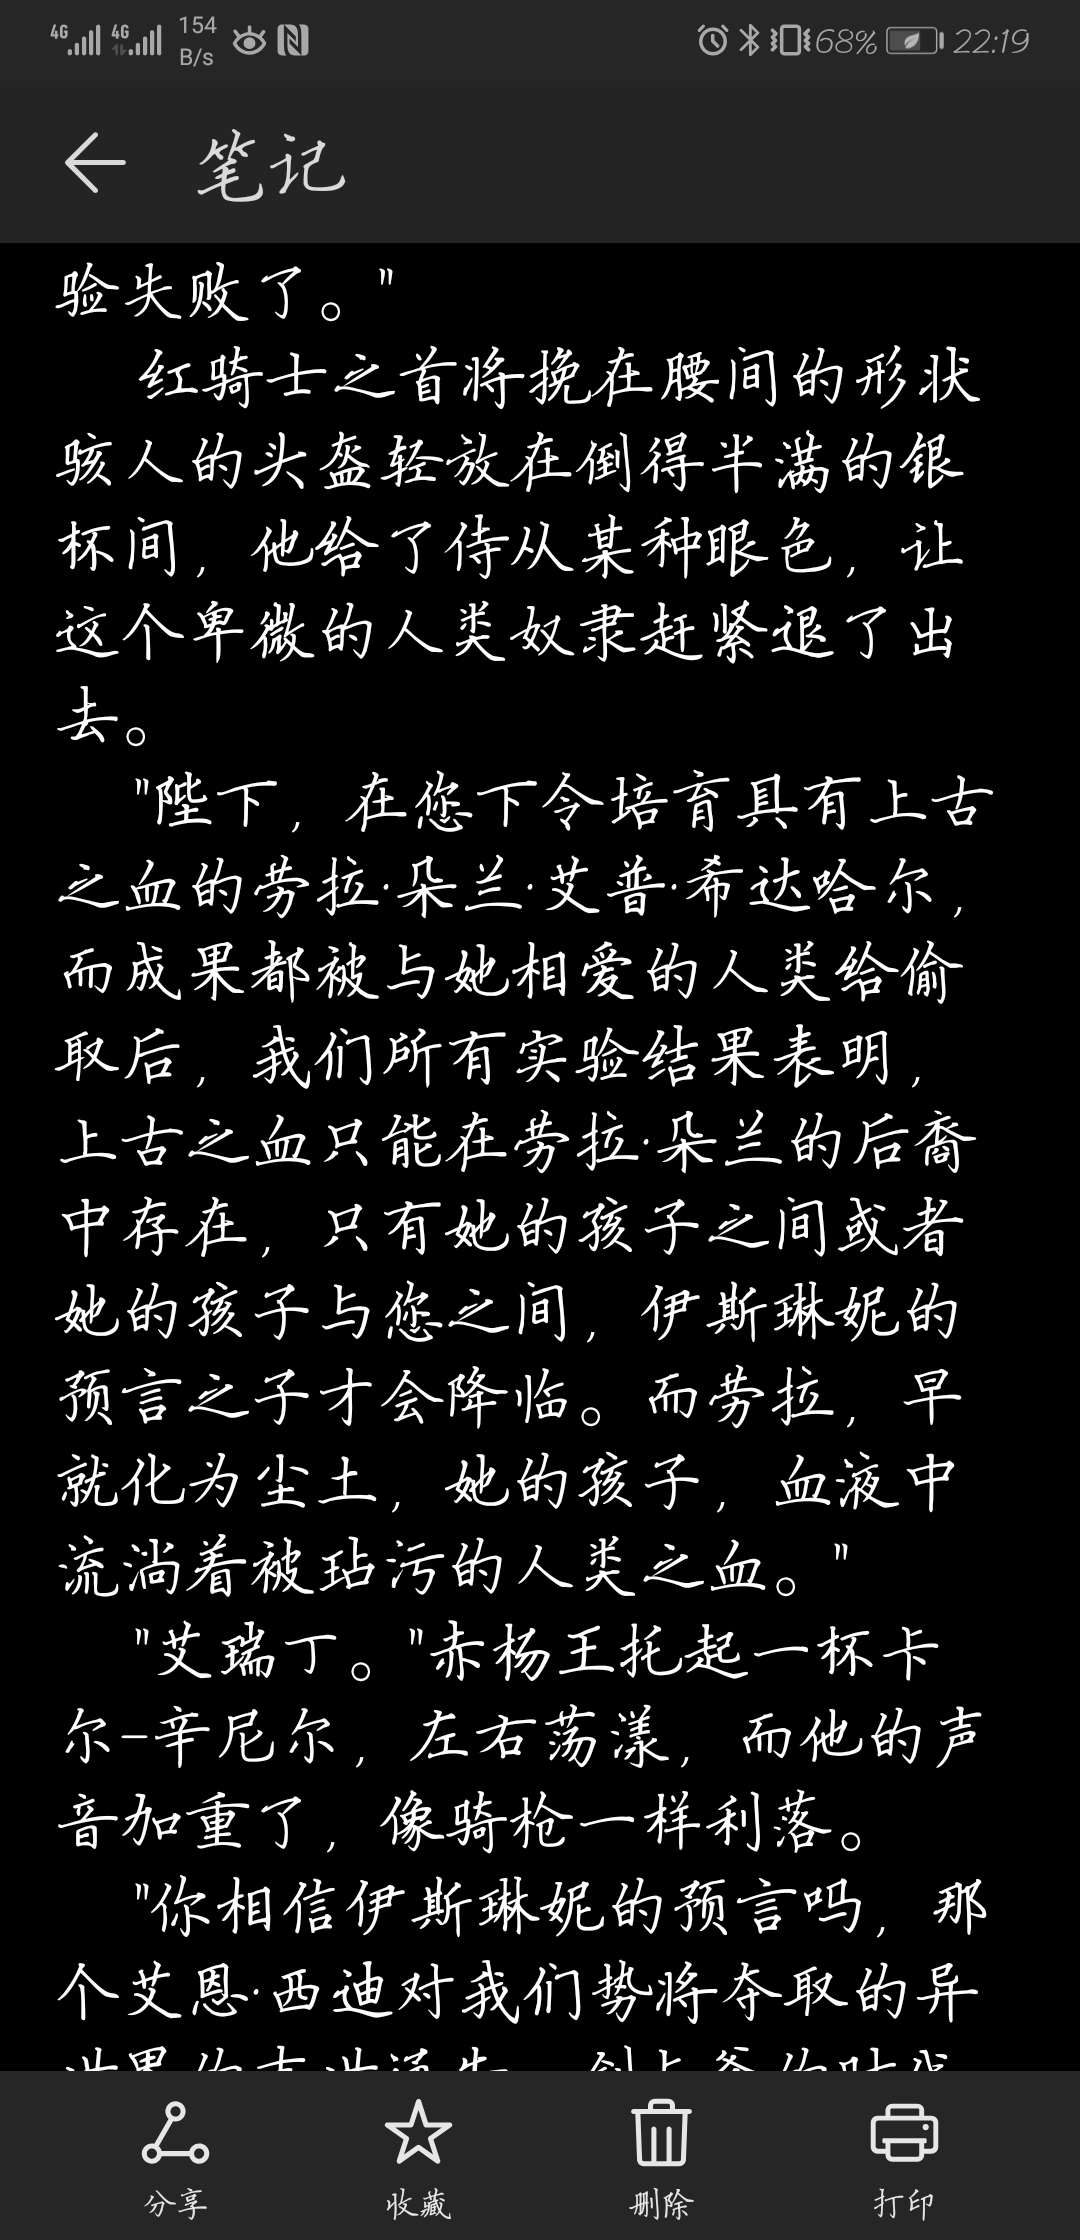 4G 4G 154 B/s 68% 22:19
笔记
验失败了。"
红骑士之首将挽在腰间的形状
骇人的头盔轻放在倒得半满的银
杯间，他给了侍从某种眼色，让
这个卑微的人类奴隶赶紧退了出
去。
"陛下，在您下令培育具有上古
之血的劳拉·朵兰·艾普·希达哈尔，
而成果都被与她相爱的人类给偷
取后，我们所有实验结果表明，
上古之血只能在劳拉·朵兰的后裔
中存在，只有她的孩子之间或者
她的孩子与您之间，伊斯琳妮的
预言之子才会降临。而劳拉，早
就化为尘土，她的孩子，血液中
流淌着被玷污的人类之血。"
"艾瑞丁。"赤杨王托起一杯卡
尔-辛尼尔，左右荡漾，而他的声
音加重了，像骑枪一样利落。
"你相信伊斯琳妮的预言吗，那
个艾恩·西迪对我们势将夺取的异
分享 收藏 删除 打印